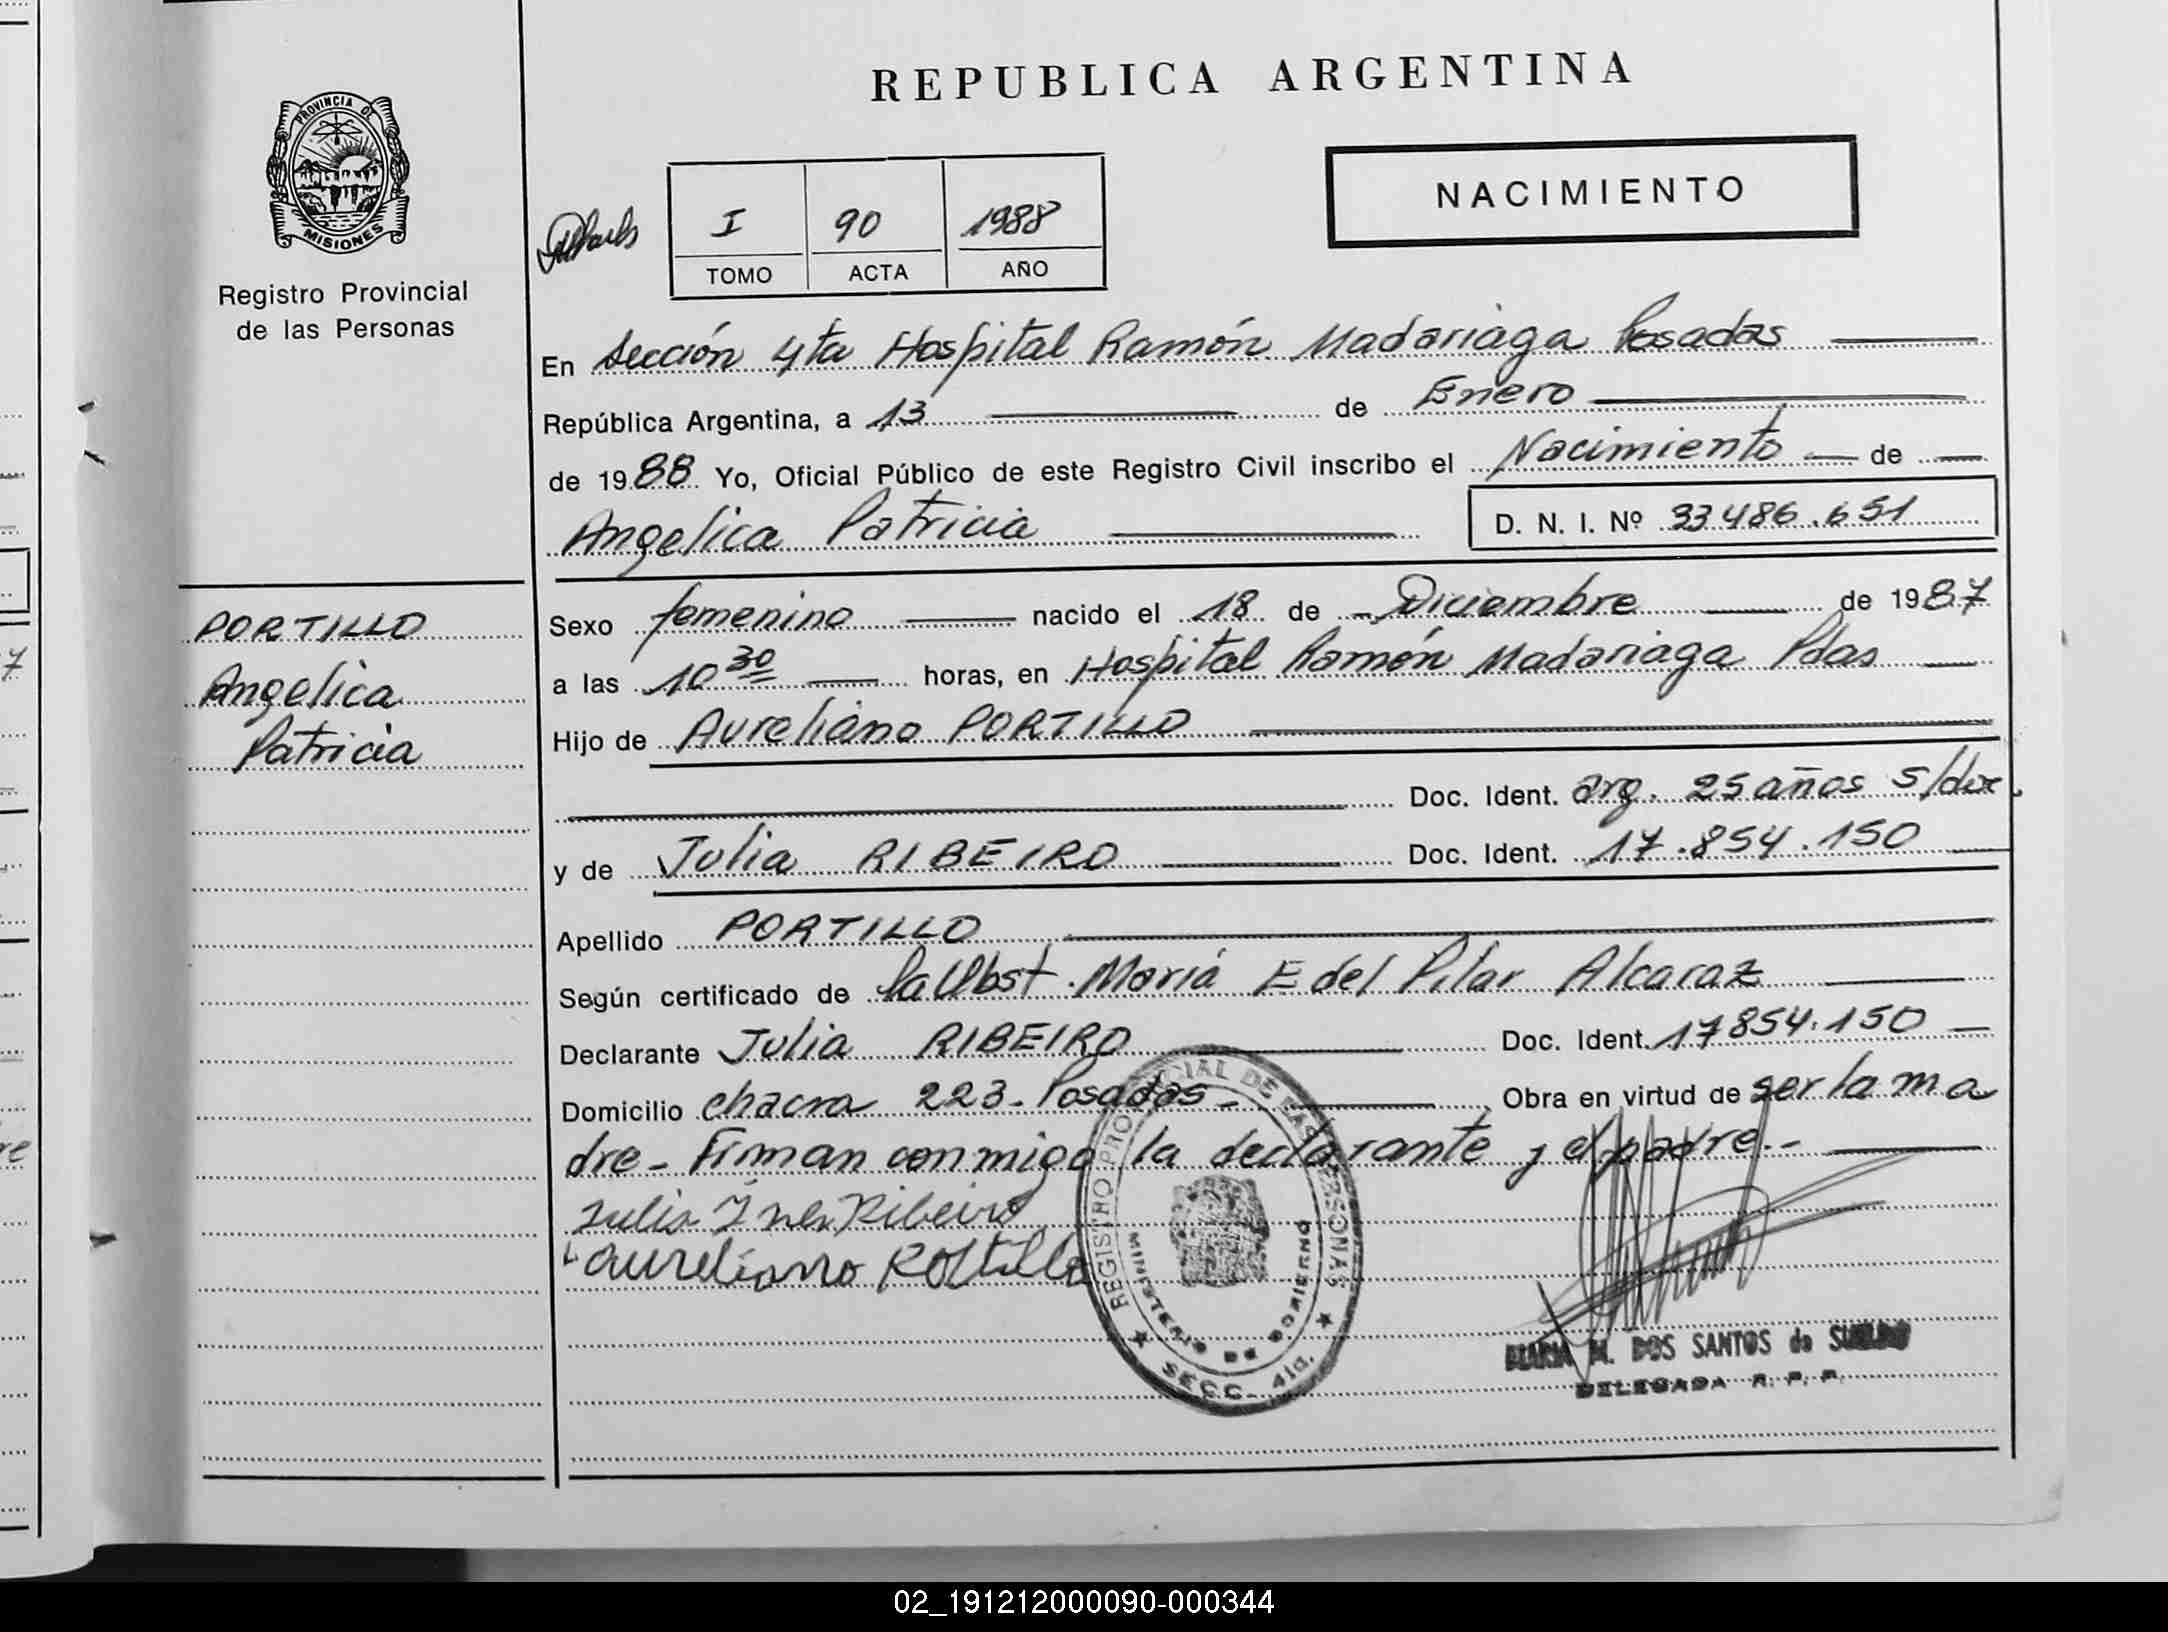 REPUBLICA ARGENTINA
PROVINCIA DE
MISIONES
Registro Provincial
de las Personas
NACIMIENTO
I 90 1988
TOMO ACTA AÑO
En Sección 4ta Hospital Ramón Madariaga Posadas
República Argentina, a 13 de Enero
de 1988 Yo, Oficial Público de este Registro Civil inscribo el Nacimiento de
Angelica Patricia D. N. I. Nº 33486.651
PORTILLO
Angelica
Patricia
Sexo femenino nacido el 18 de Diciembre de 1987
a las 10 30 horas, en Hospital Ramón Madariaga Pdas
Hijo de Aureliano PORTILLO
Doc. Ident. arg. 25 años s/doc.
y de Julia RIBEIRO Doc. Ident. 17.854.150
Apellido PORTILLO
Según certificado de la Obst. Mariá E del Pilar Alcaraz
Declarante Julia RIBEIRO Doc. Ident. 17854.150
Domicilio chacra 223 - Posadas - Obra en virtud de ser la ma
dre - Firman conmigo la declarante y el padre.-
Julia Ines Ribeiro
Aureliano Portillo
REGISTRO PROVINCIAL DE LAS PERSONAS
MINISTERIO DE GOBIERNO
SECC. 4ta.
MARIA M. DOS SANTOS de
DELEGADA R. P. P.
02_191212000090-000344